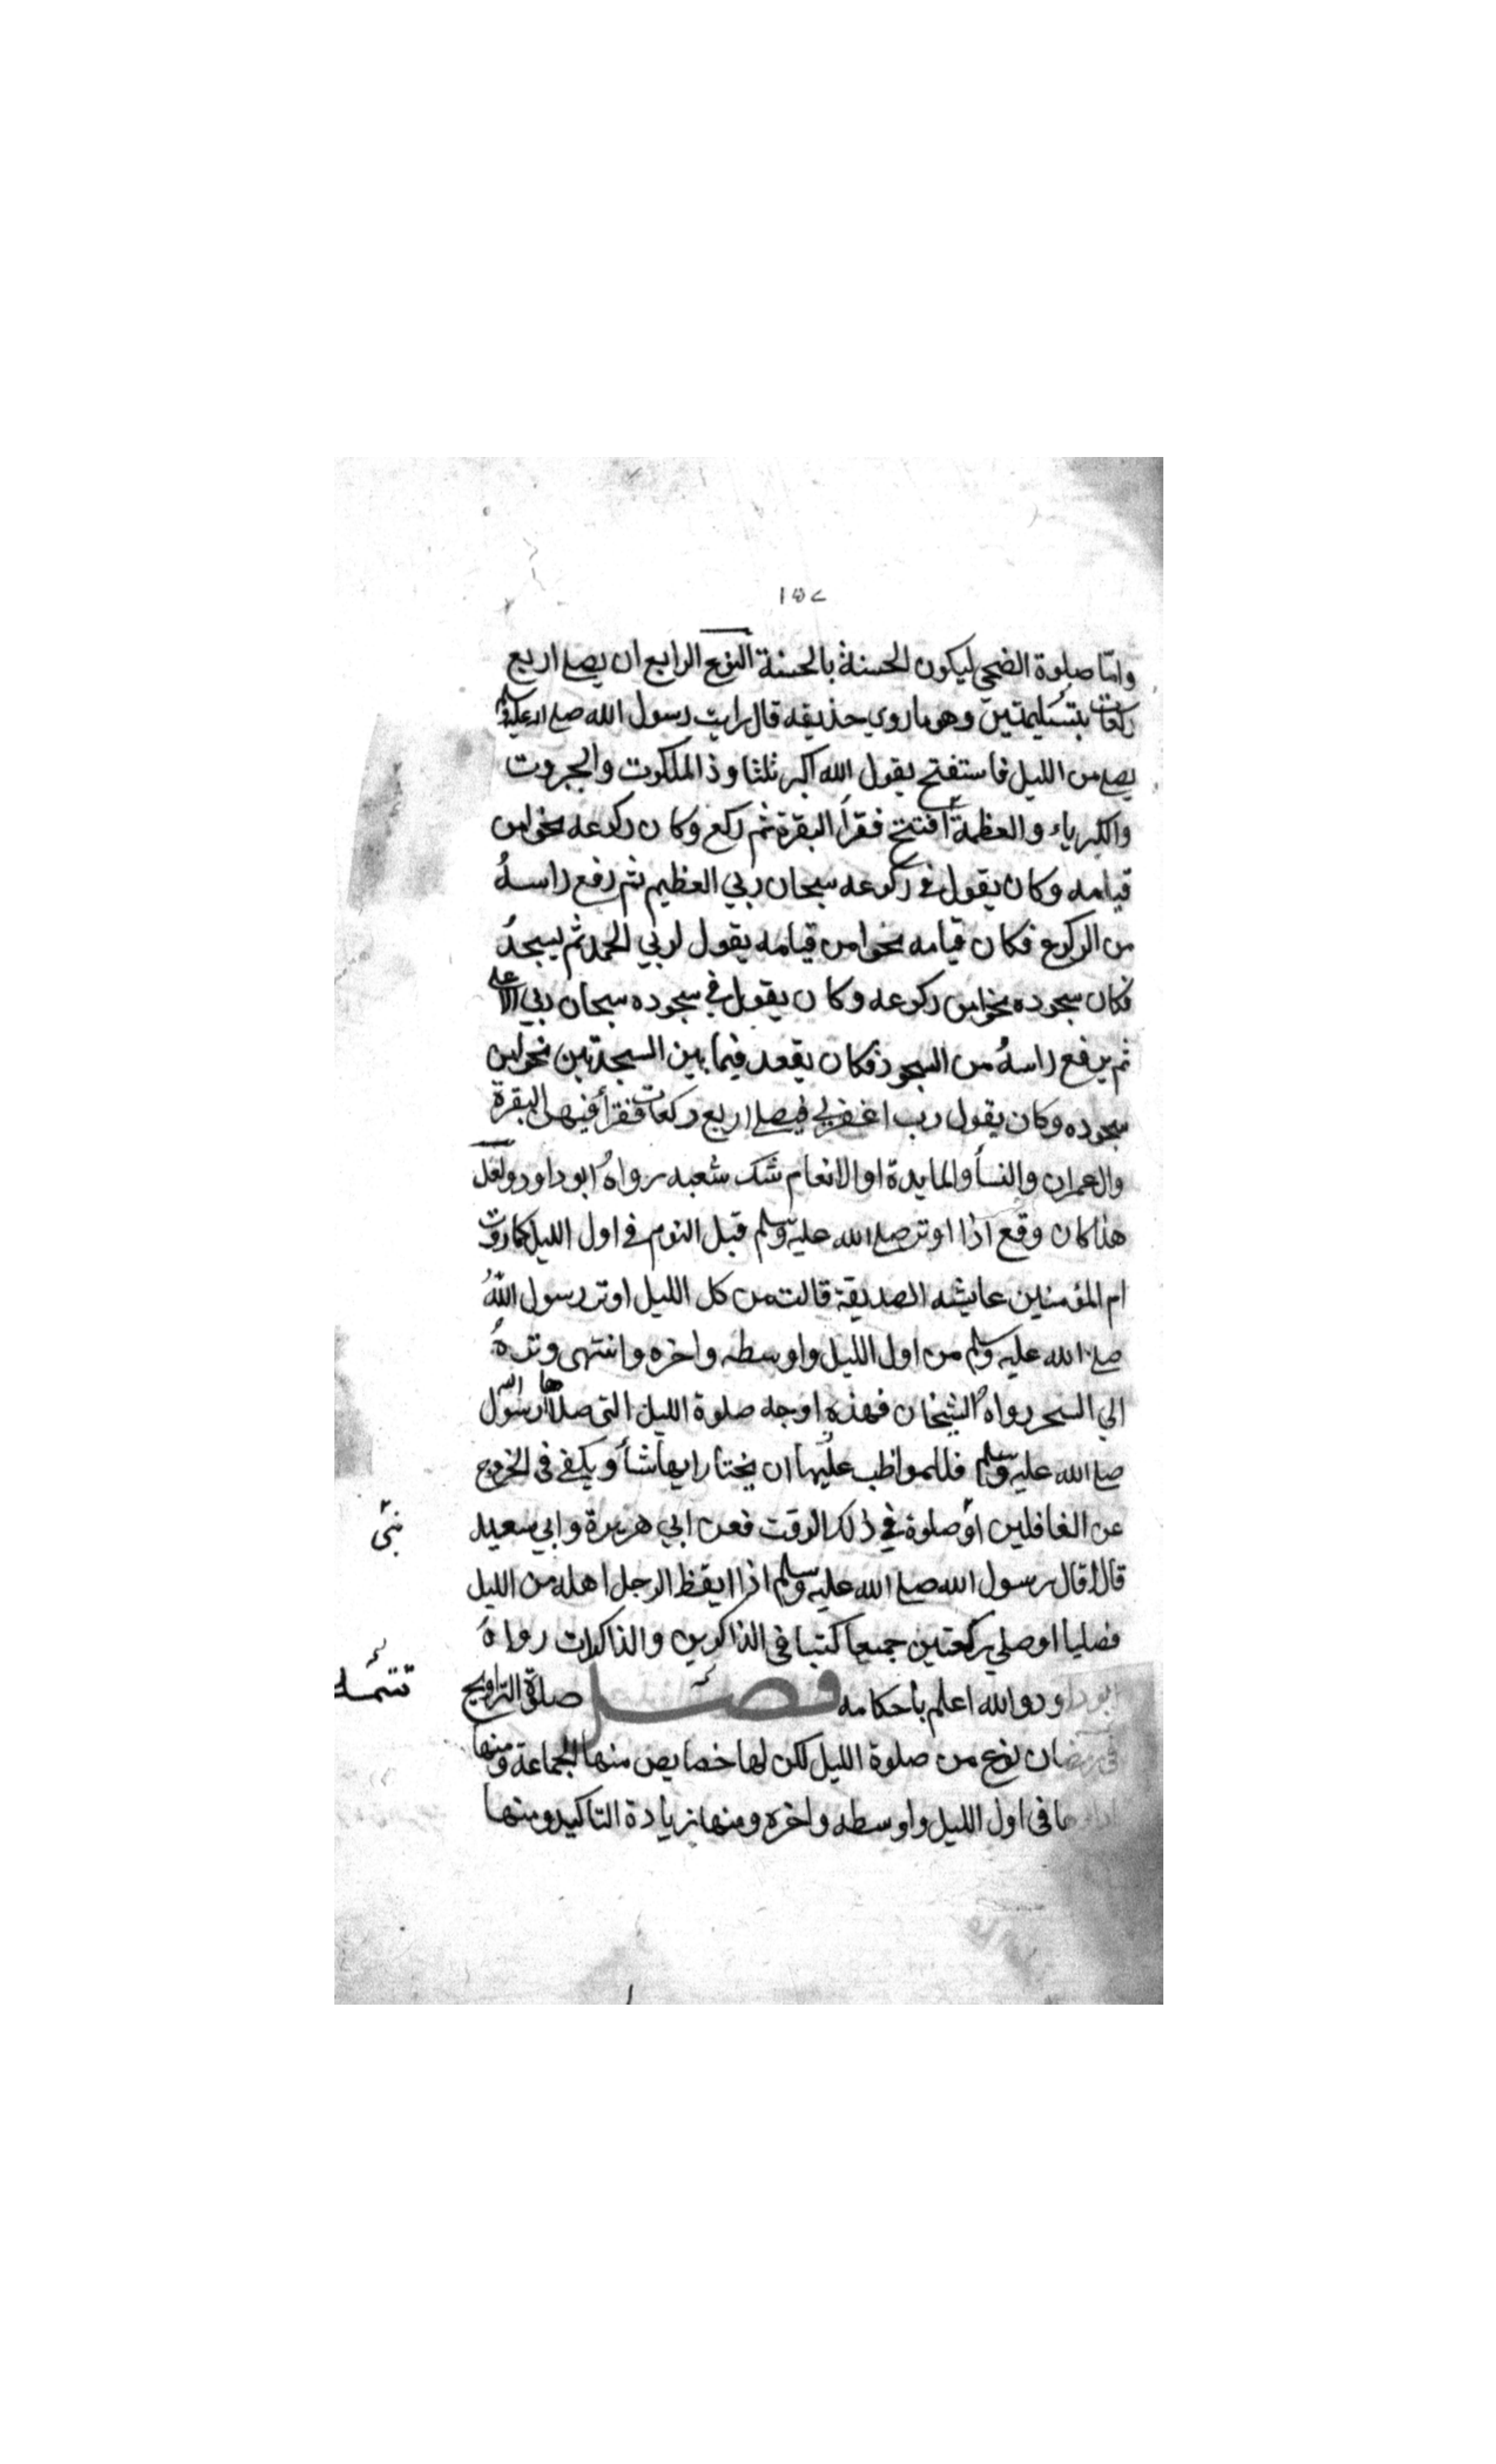 ١٥٧
وامّا صلوة الضحي ليكون الحسنة بالحسنة النوع الرابع ان يصلے اربع
ركعات بتسليمتين وهو ما روي حذيفه قال رايت رسول الله صلے الله عليه وسلم
يصلے من الليل فاستفتح يقول الله اكبر ثلثا وذ الملكوت والجبروت
والكبرياء والعظمة افتتح فقرأ البقرة ثم ركع وكان ركوعه نحوا من
قيامه وكان يقول في ركوعه سبحان ربي العظيم ثم رفع راسهُ
من الركوع فكان قيامه نحوا من قيامه يقول لربي الحمد ثم يسجدُ
فكان سجوده نحوا من ركوعه وكان يقول في سجوده سبحان ربي الاعلے
ثم يرفع راسهُ من السجود فكان يقعد فيما بين السجدتين نحوا من
سجوده وكان يقول رب اغفرلي فيصلے اربع ركعات فقرأ فيهن البقرة
وال عمران والنسأ والمايدة او الانعام شك شعبه رواهُ ابوداود ولعل
هذا كان وقع اذا اوتر صلے الله عليه وسلم قبل النوم في اول الليل كما روت
ام المؤمنين عايشه الصديقة قالت من كل الليل اوتر رسول اللهُ
صلے الله عليه وسلم من اول الليل واوسطه واخره وانتهى وترهُ
الي السحر رواهُ الشيخان فهذه اوجه صلوة الليل التى صلاها رسول الله
صلے الله عليه وسلم فللمواظب عليها ان يختار ايها شأ ويكفى فى الخروج
عن الغافلين او صلوة في ذلك الوقت فعن ابي هريرة وابي سعيد
قالا قال رسول الله صلے الله عليه وسلم اذا ايقظ الرجل اهله من الليل
فصليا او صلي ركعتين جميعا كتبا فى الذاكرين والذاكرات رواهُ
ابوداود والله اعلم بأحكامه فصل صلوة التراويح
فى رمضان نوع من صلوة الليل لكن لها خصايص منها الجماعة ومنها
اداوها فى اول الليل واوسطه واخره ومنها زيادة التاكيد ومنها